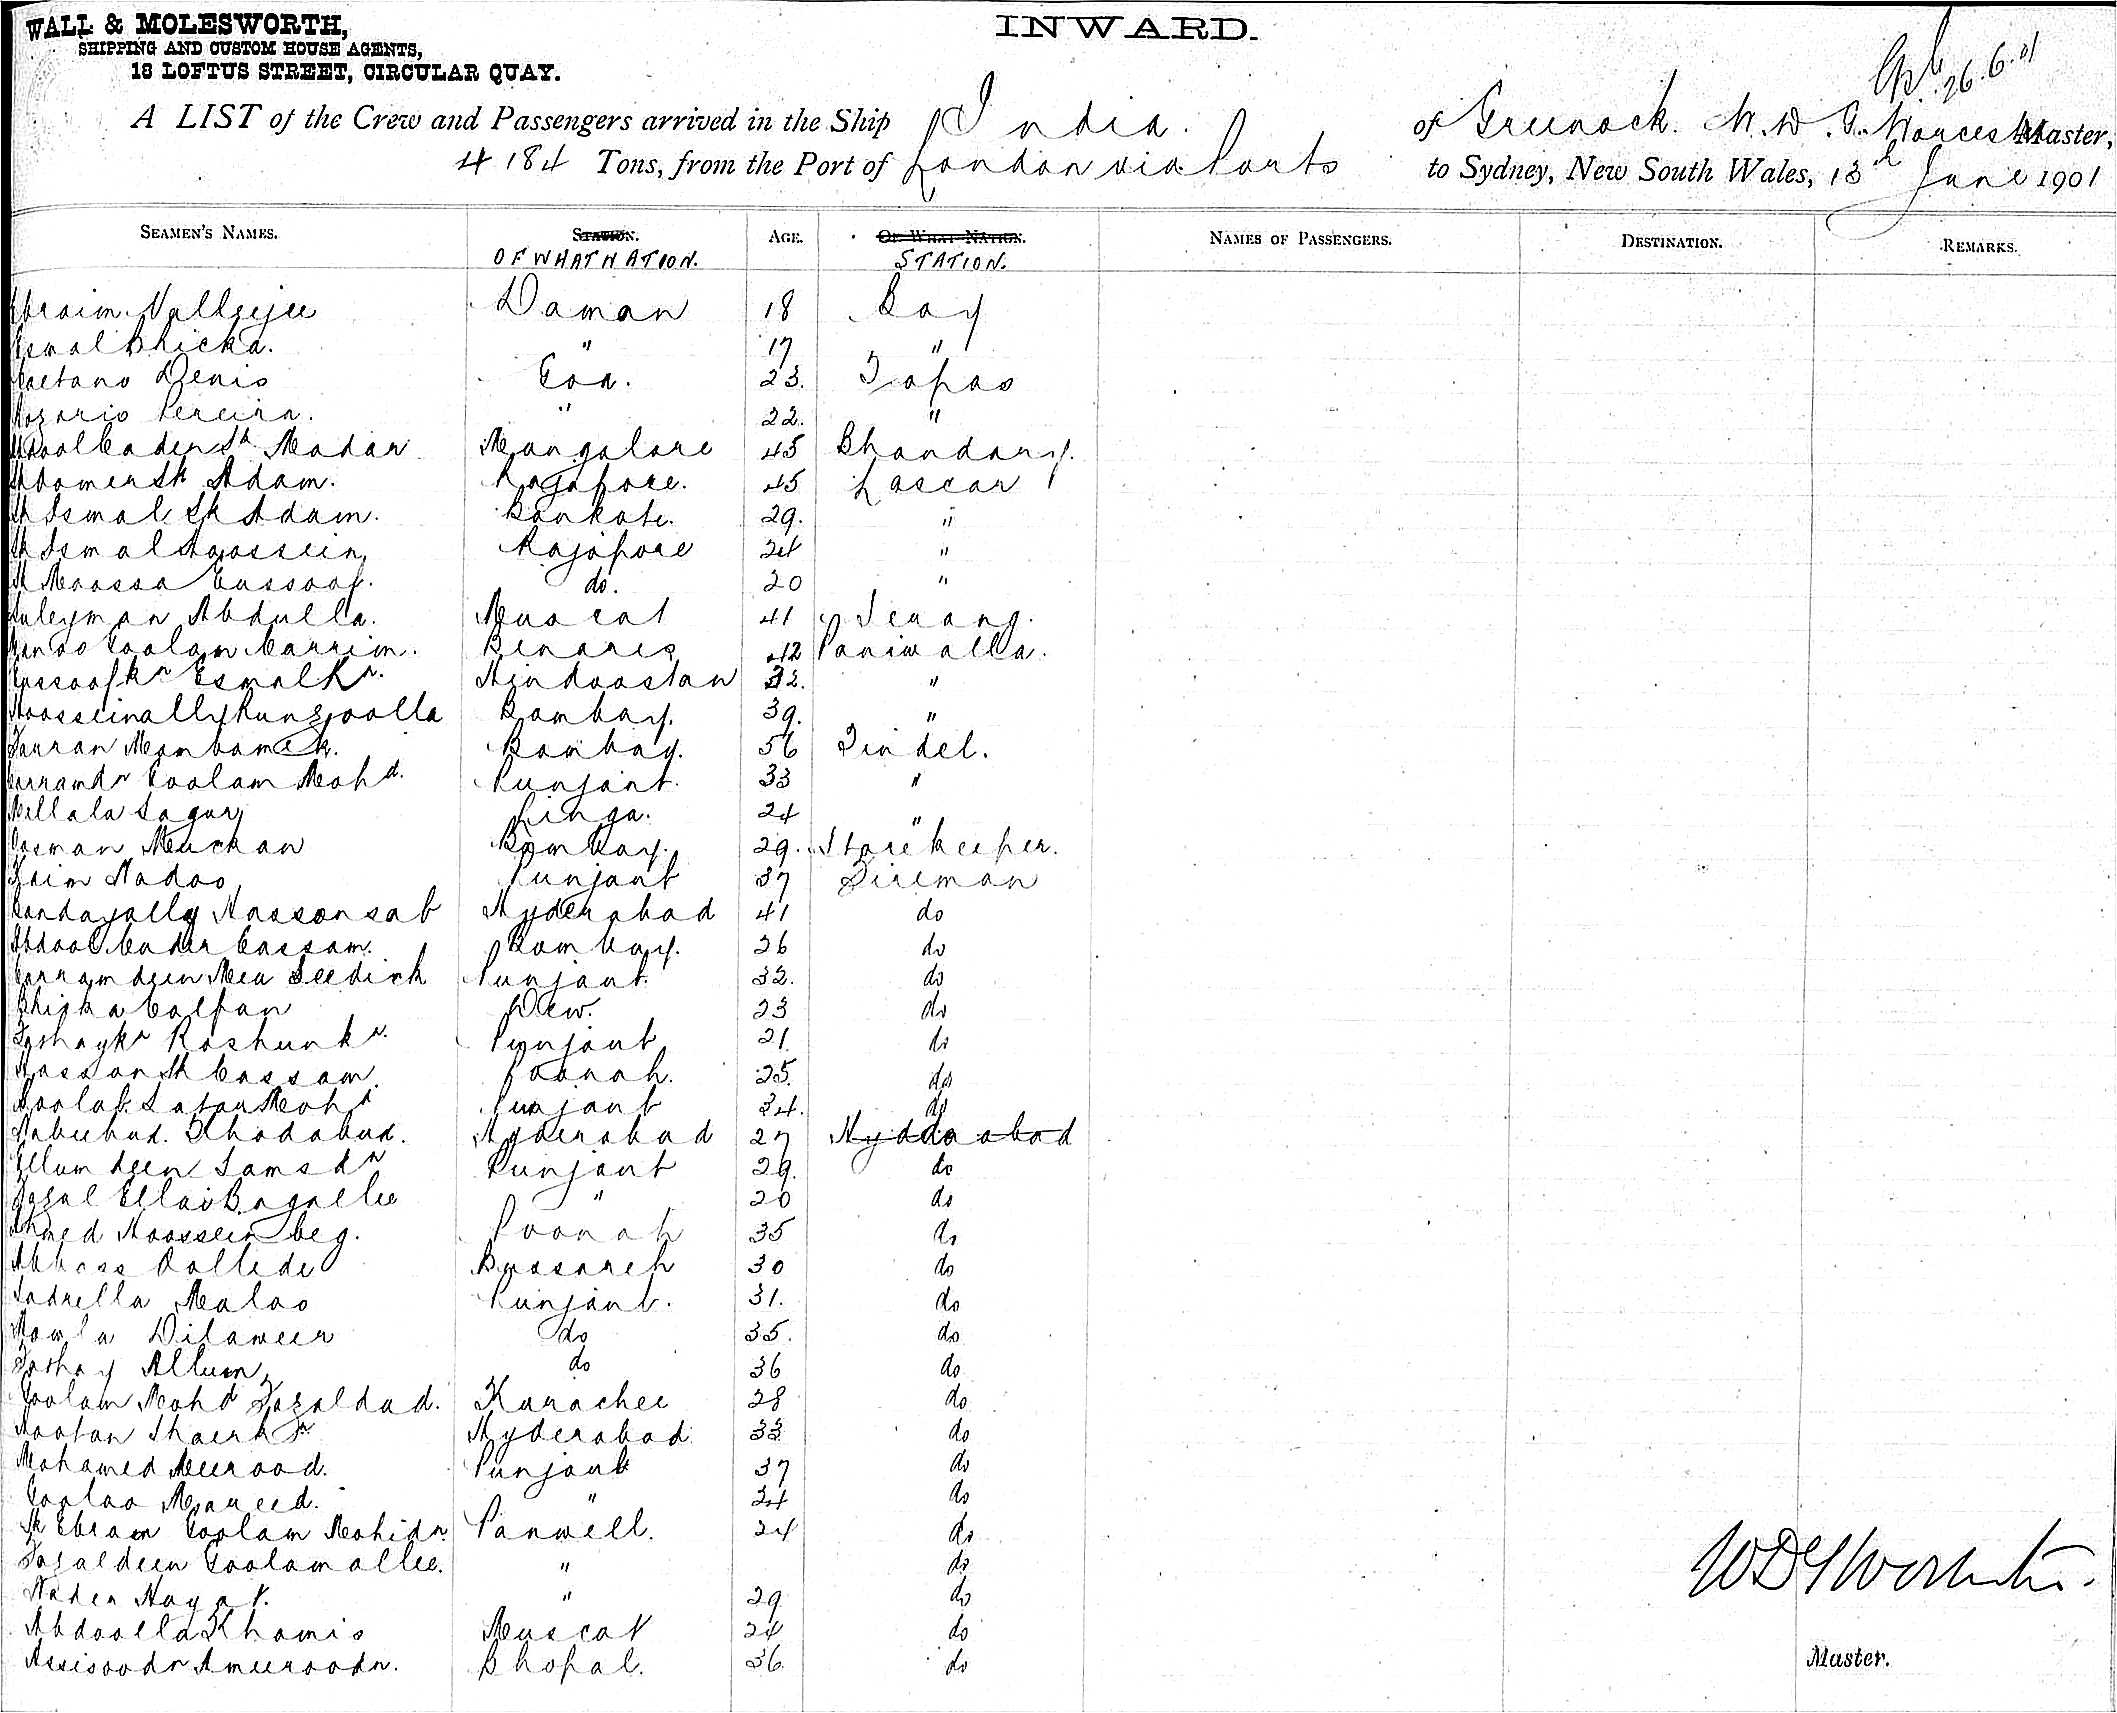 WALL & MOLESWORTH,
SHIPPING AND CUSTOM HOUSE AGENTS,
18 LOFTUS STREET, CIRCULAR QUAY.
INWARD.
26.6.01
A LIST of the Crew and Passengers arrived in the Ship India. of Greenock. W. D. G. Worcester Master,
4184 Tons, from the Port of London via Ports to Sydney, New South Wales, 13th June 1901
SEAMEN'S NAMES. STATION. AGE. OF WHAT NATION. NAMES OF PASSENGERS. DESTINATION. REMARKS.
OF WHAT NATION. STATION.
Ebraim Vallejee Daman 18 Boy
Esmal Bhicka. " 17 "
Caetano Denis Goa. 23. Topas
Rozario Pereira. " 22. "
Abdool Cader Sk Madar Mangalore 45 Bhandary.
Sk Adam. Rajapore. 45 Lascar
Sk Ismal Sk Adam. Bankote. 29. "
Sk Ismal Hoossein Rajapore 24 "
Sk Moossa Eussoof. do. 20 "
Suleyman Abdulla. Muscat 41 Serang.
Goolam Carrim. Benares 42 Paniwalla.
Eussoofkn Esmalkn. Hindoostan 32. "
Hoosseinally Bombay. 39. "
Bombay. 56 Tindel.
Goolam Mohd. Punjaut. 33 "
Linga. 24 "
Oosman Bombay. 29. Storekeeper.
Punjaut 37 Fireman
Hassonsab Hyderabad 41 do
Abdool Cader Cassam. Bombay. 26 do
Seedick Punjaut. 32. do
Bhijka Dew. 23 do
Roshunkn. Punjaut 21. do
Hasson Sk Cassam. Poonah. 25. do
Mohd Punjaut 24. do
Khodabux. Hyderabad 27 Hyddoabad
Ellumdeen Samsdn Punjaut 29. do
Fazal " 20 do
Ahmed Hoossein beg. Poonah 35 do
Abbass Bussareh 30 do
Punjaut. 31. do
Mowla Dilaweer do 35. do
Allum do 36 do
Goolam Mohd Fazaldad. Karachee 28 do
Hyderabad 33 do
Mohamed Meerood. Punjaub 37 do
" 24 do
Sk Ebram Goolam Mohidn. Panwell. 24 do
Fazaldeen Goolamallee. " do
Nader Hayat. " 29 do
Abdoolla Khamis Muscat 24 do
Assisoodn Ameeroodn. Bhopal. 36. do
WDGWorcester.
Master.